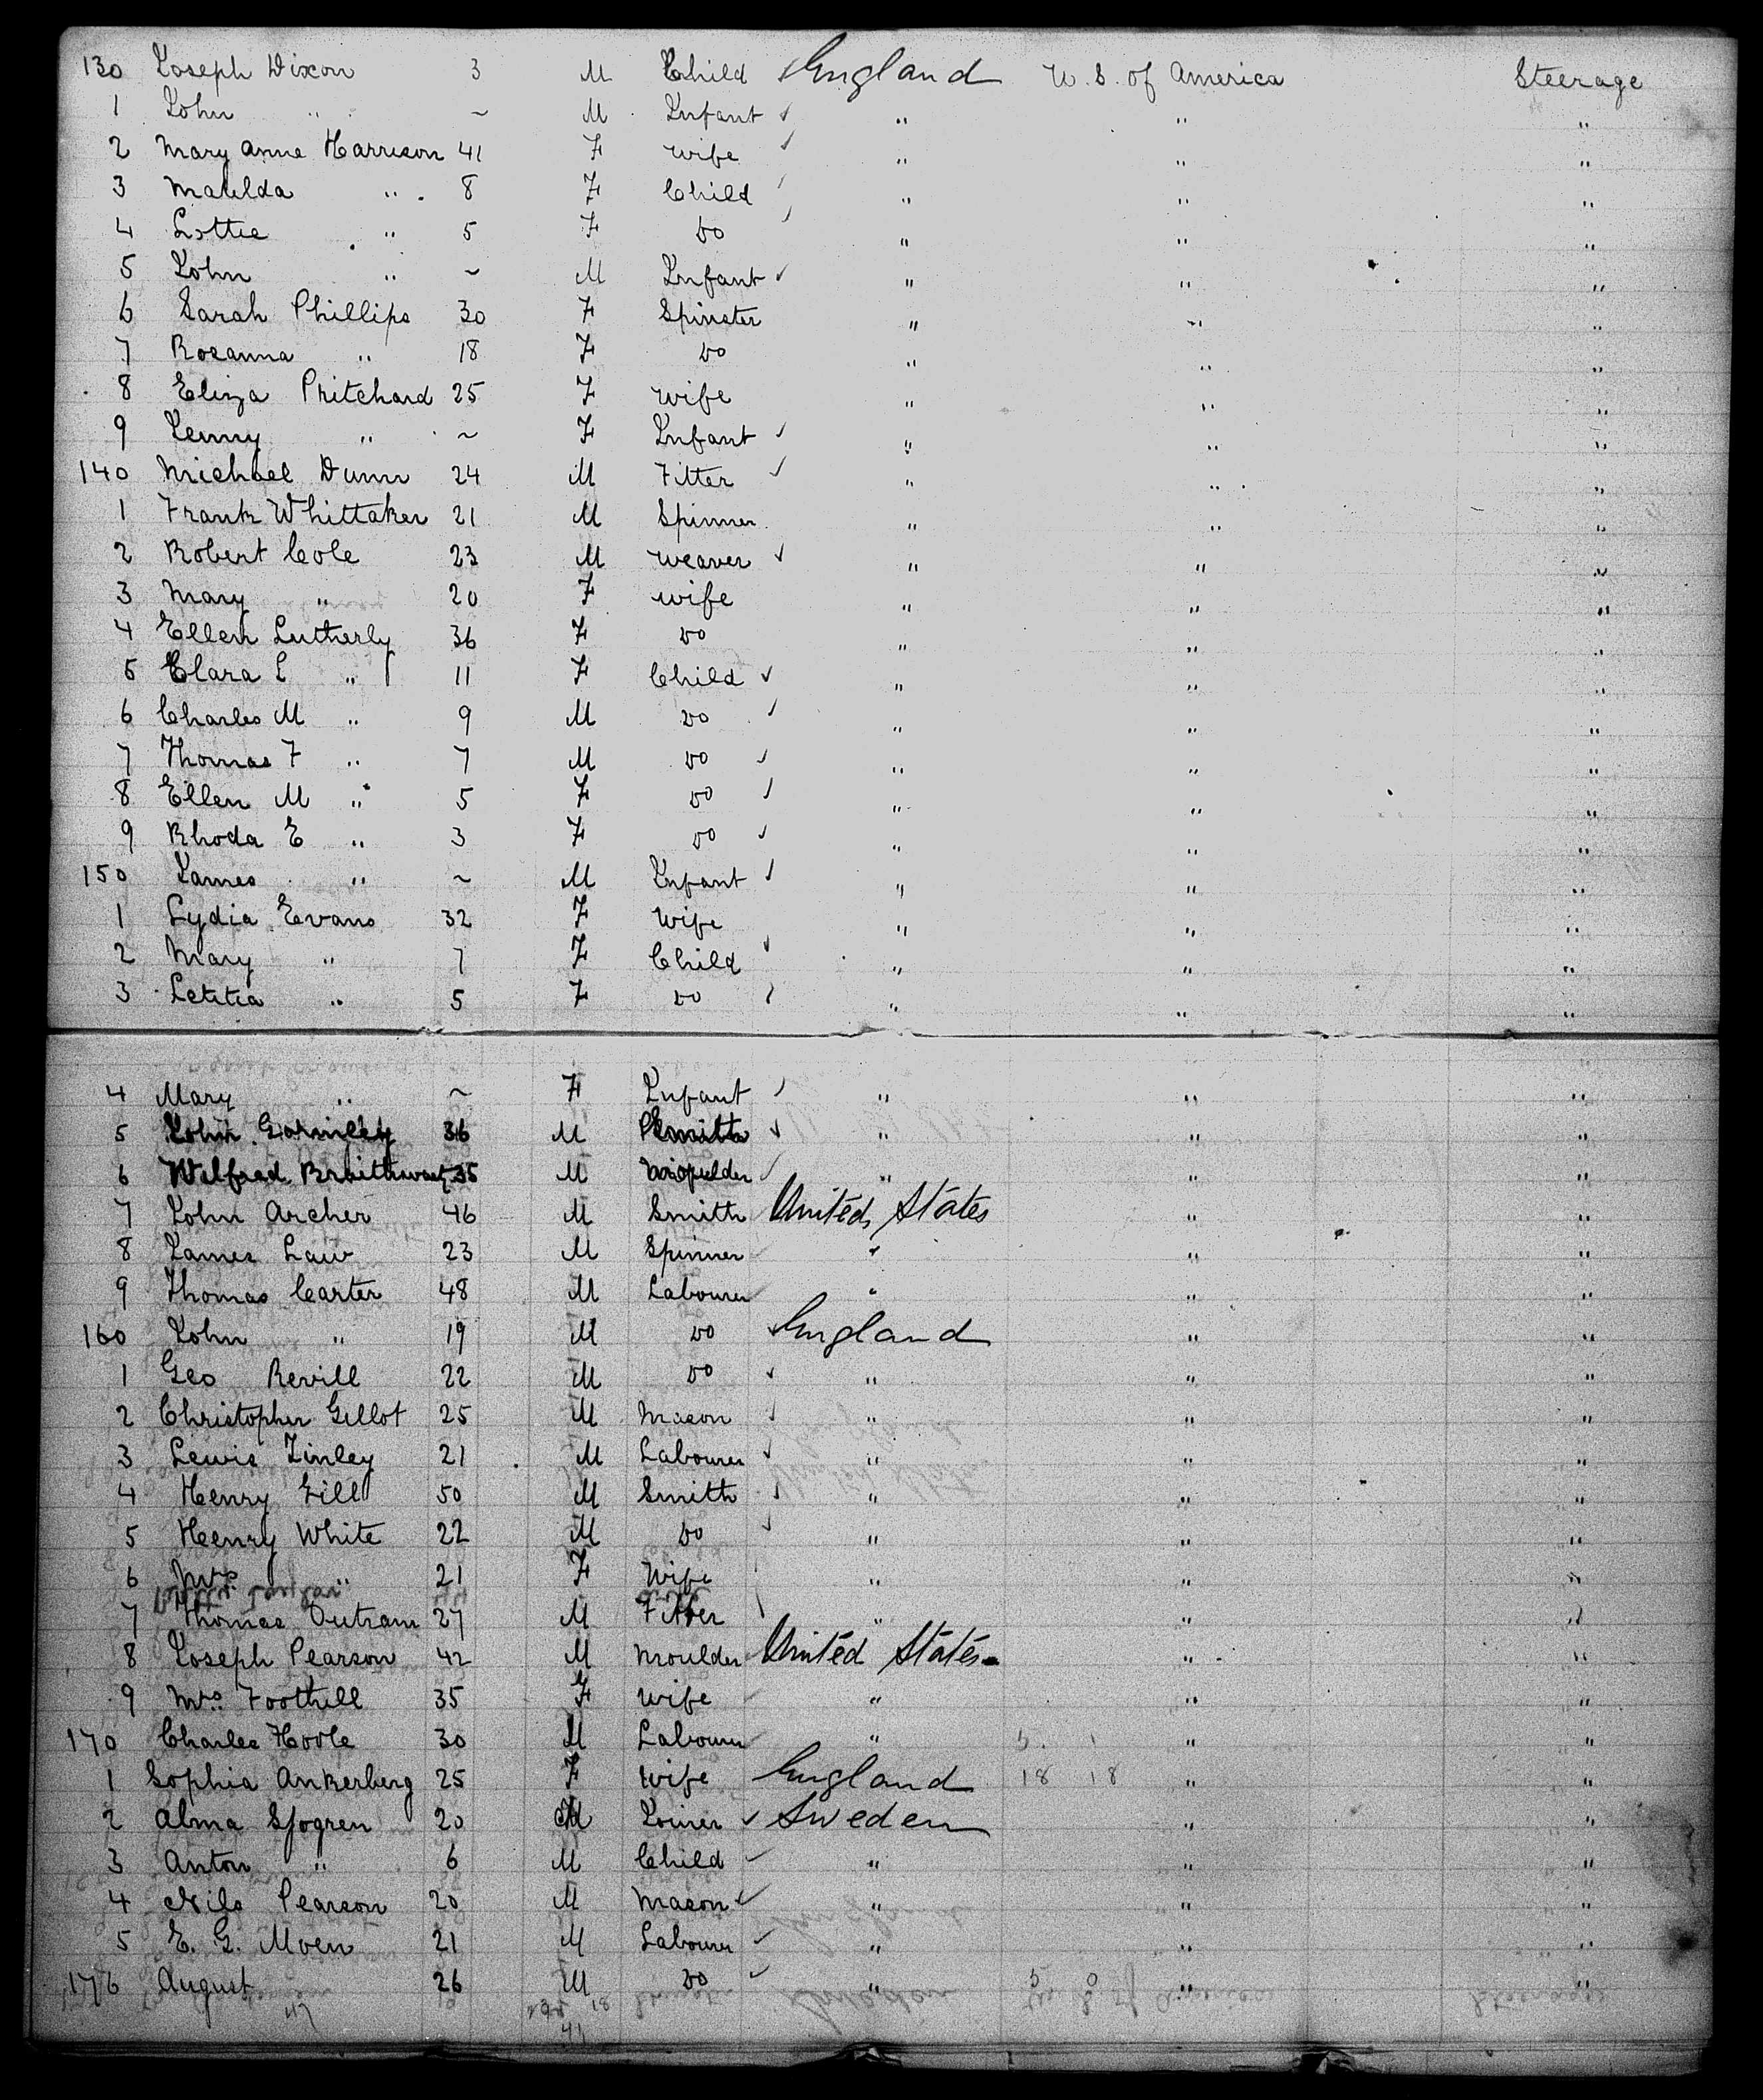 130 Joseph Dixon 3 M Child England U.S. of America Steerage
1 John " ~ M Infant " " "
2 Mary Anne Harrison 41 F Wife " " "
3 Matilda " 8 F Child " " "
4 Lottie " 5 F Do " " "
5 John " ~ M Infant " " "
6 Sarah Phillips 30 F Spinster " " "
7 Rosanna " 18 F Do " " "
8 Eliza Pritchard 25 F Wife " " "
9 Jenny " ~ F Infant " " "
140 Michael Dunn 24 M Fitter " " "
1 Frank Whittaker 21 M Spinner " " "
2 Robert Cole 23 M Weaver " " "
3 Mary " 20 F Wife " " "
4 Ellen Lutherly 36 F Do " " "
5 Clara E " 11 F Child " " "
6 Charles M " 9 M Do " " "
7 Thomas F " 7 M Do " " "
8 Ellen M " 5 F Do " " "
9 Rhoda E " 3 F Do " " "
150 James " ~ M Infant " " "
1 Lydia Evans 32 F Wife " " "
2 Mary " 7 F Child " " "
3 Letitia " 5 F Do " " "
4 Mary " ~ F Infant " " "
5 John Gormley 36 M " " "
6 Wilfred 35 M Moulder " " "
7 John Archer 46 M Smith United States " "
8 James Law 23 M Spinner " " "
9 Thomas Carter 48 M Labourer " " "
160 John " 19 M Do England " "
1 Geo Revill 22 M Do " " "
2 Christopher Gillot 25 M Mason " " "
3 Lewis Finley 21 M Labourer " " "
4 Henry Gill 50 M Smith " " "
5 Henry White 22 M Do " " "
6 Mrs " 21 F Wife " " "
7 Thomas Outram 27 M Fitter " " "
8 Joseph Pearson 42 M Moulder United States " "
9 Mrs Foothill 35 F Wife " " "
170 Charles Hoole 30 M Labourer " " "
1 Sophia Ankerberg 25 F Wife England 18 18 " "
2 Alma Sjogren 20 M Joiner Sweden " "
3 Anton " 6 M Child " " "
4 Nils Pearson 20 M Mason " " "
5 E. G. Moen 21 M Labourer " " "
176 August 26 M Do " " "
47
41